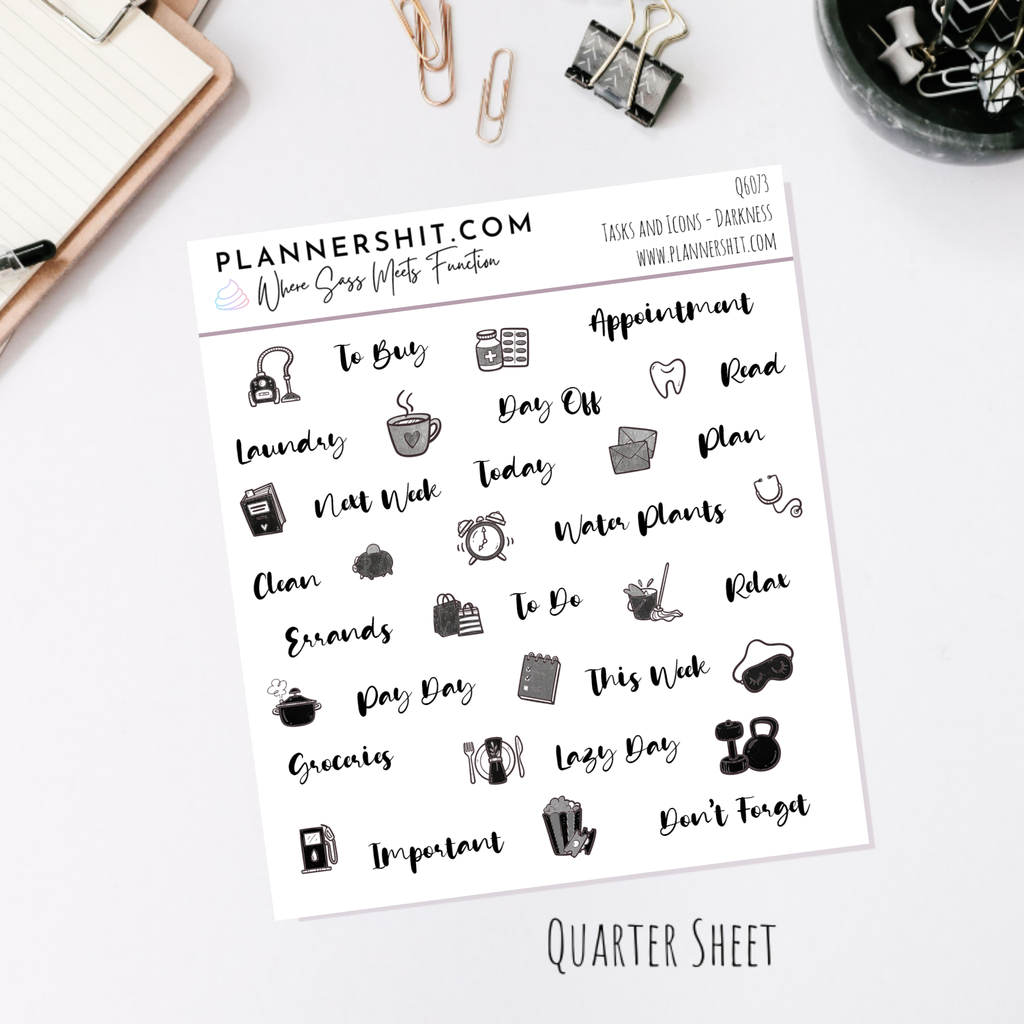 PLANNERSHIT.COM
Where Sass Meets Function
Q6073
Tasks and Icons - Darkness
www.plannershit.com
To Buy
Appointment
Laundry
Day Off
Read
Next Week
Today
Plan
Clean
Water Plants
Errands
To Do
Relax
Pay Day
This Week
Groceries
Lazy Day
Important
Don't Forget
Quarter Sheet